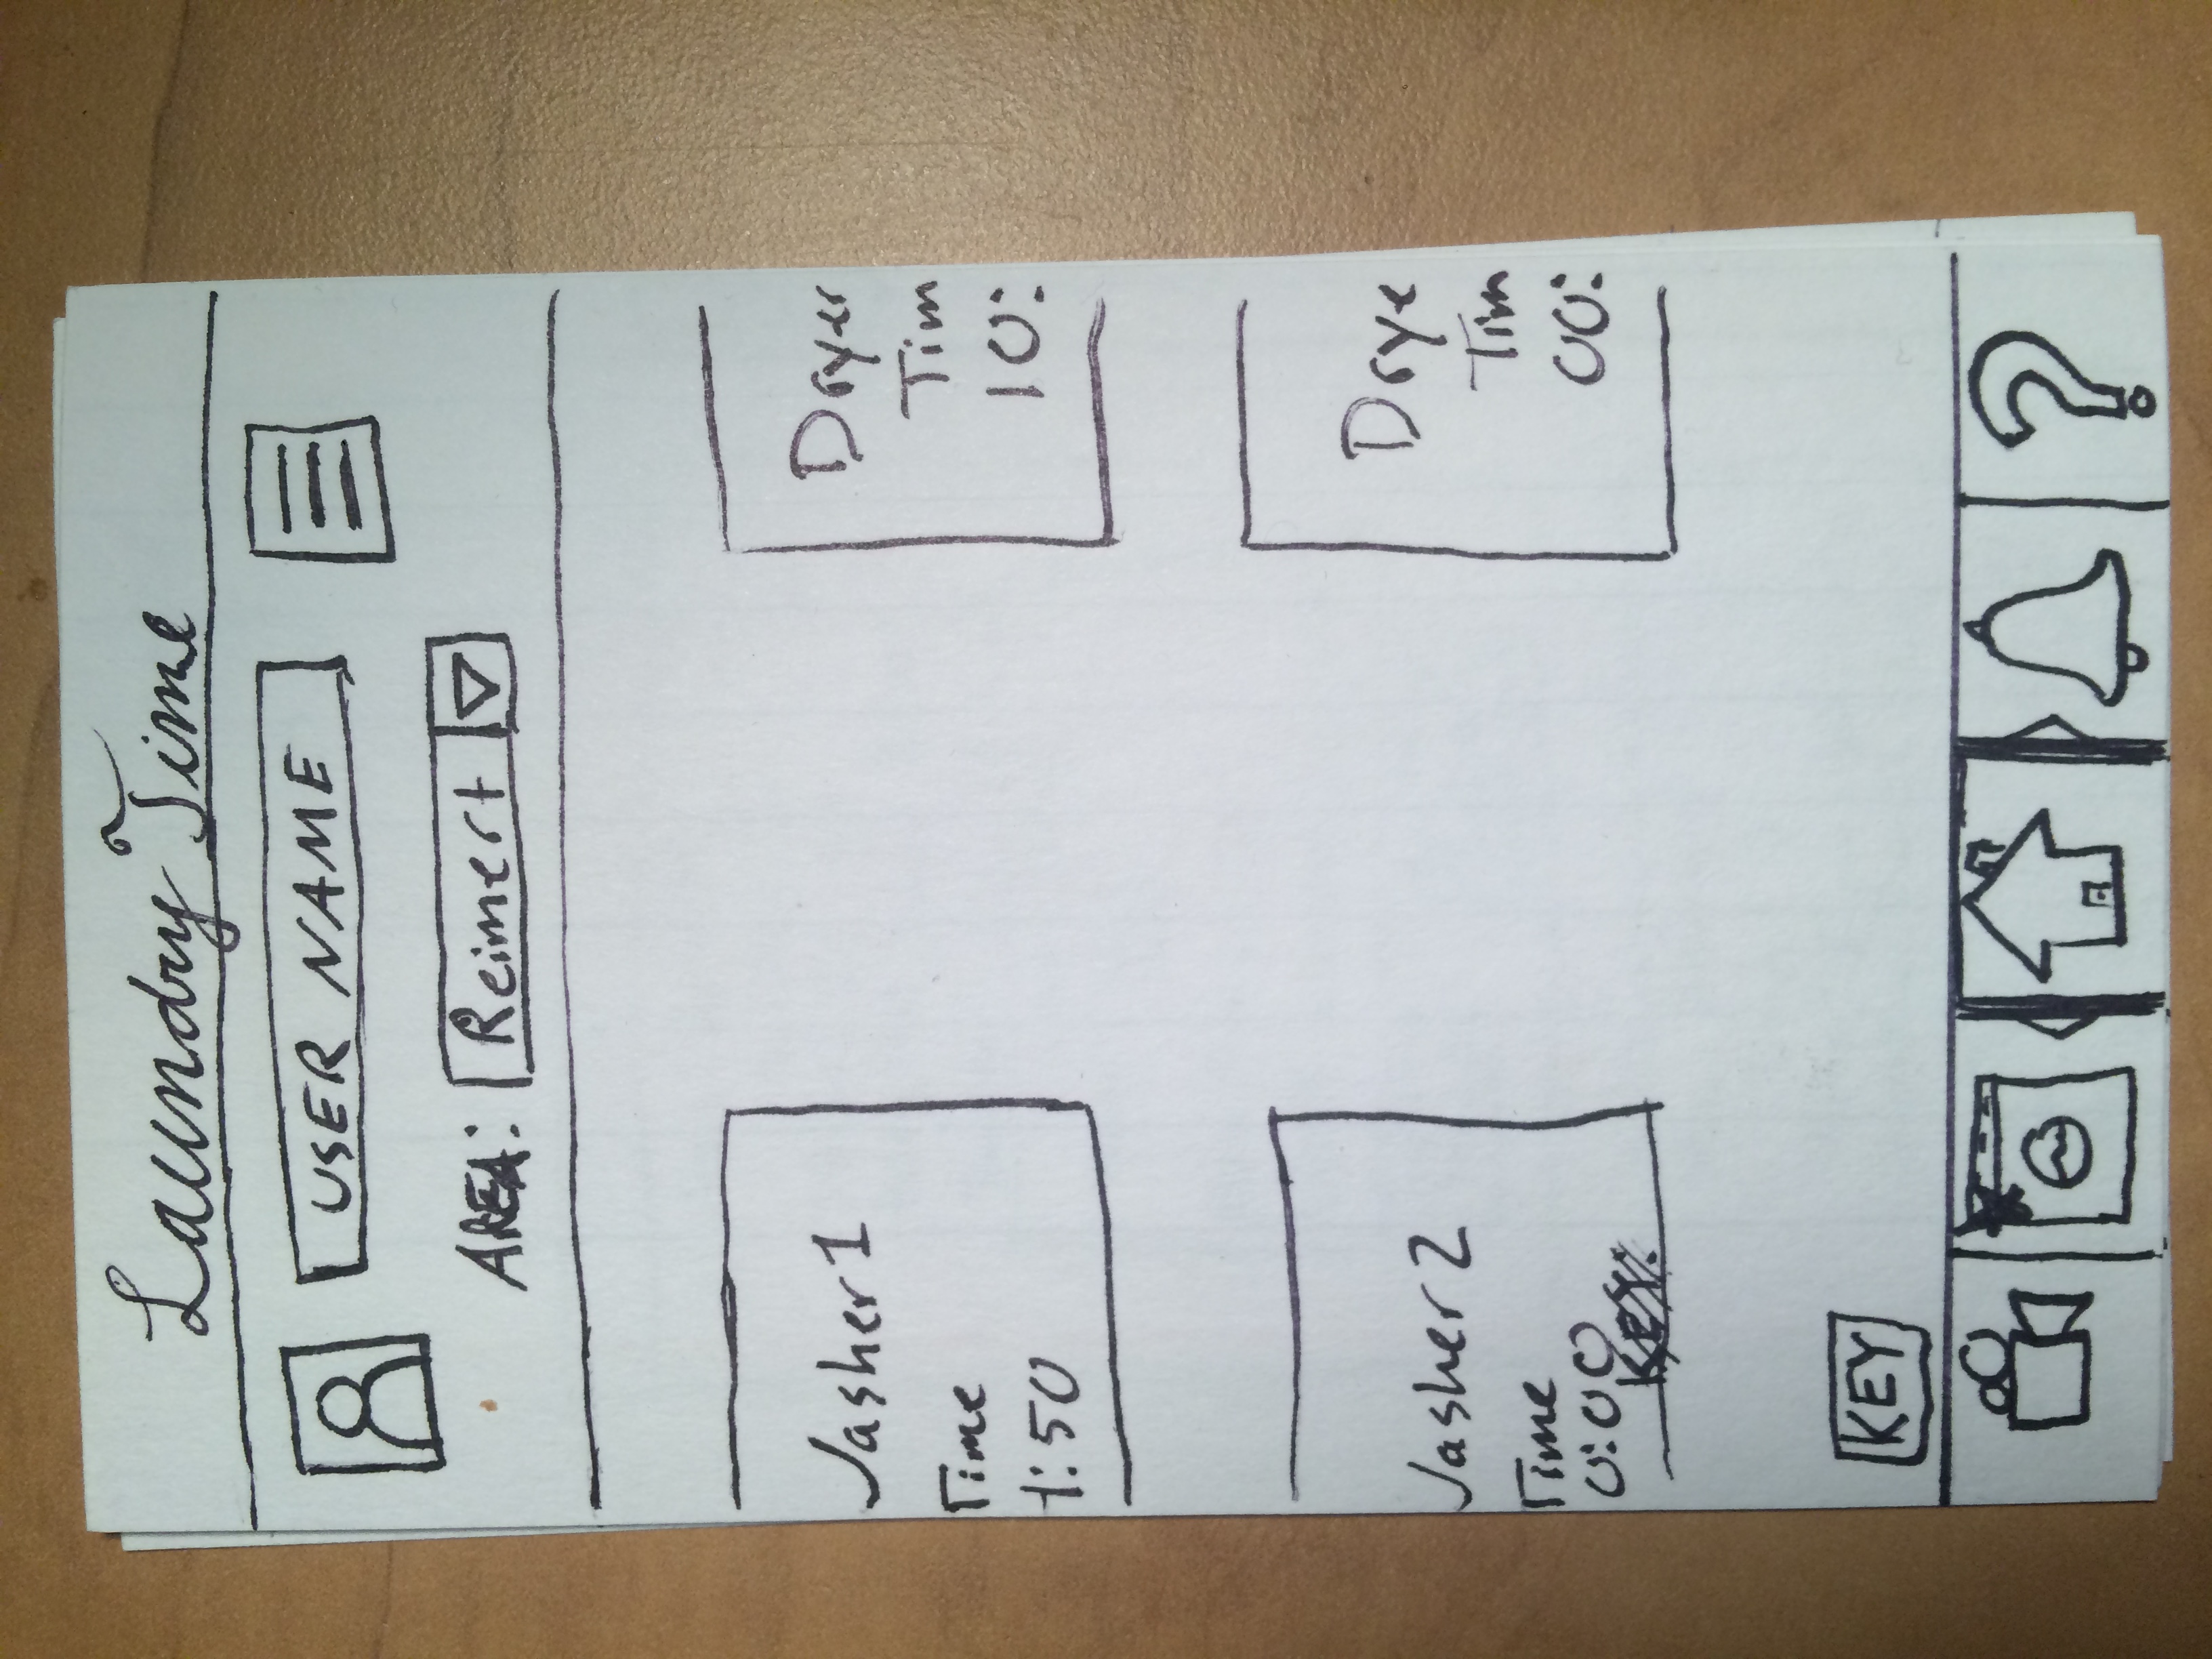 Laundry Time
USER NAME
AREA: Reimert
asher 1
Time
1:50
Dryer
Tim
10:
asher 2
Time
0:00
KEY:
Drye
Tim
00:
KEY
?